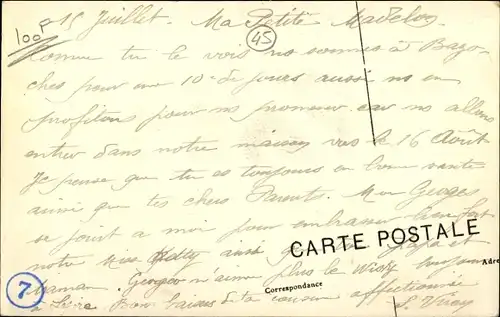 100F
15 Juillet. Ma Petite Madelon
45
Comme tu le vois ns sommes à Bazo-
ches pour une 10e de jours aussi ns en
profitons pour ns promener car ns allons
entrer dans notre maison vers le 16 Août
Je pense que tu es toujours en bonne santé
ainsi que tes chers Parents. Mon Georges
se joint à moi pour embrasser bien fort
CARTE POSTALE
notre aussi et
Maman. Georges n'aime plus le
Correspondance
Adre
7
à Bons baisers de ta cousine affectionnée